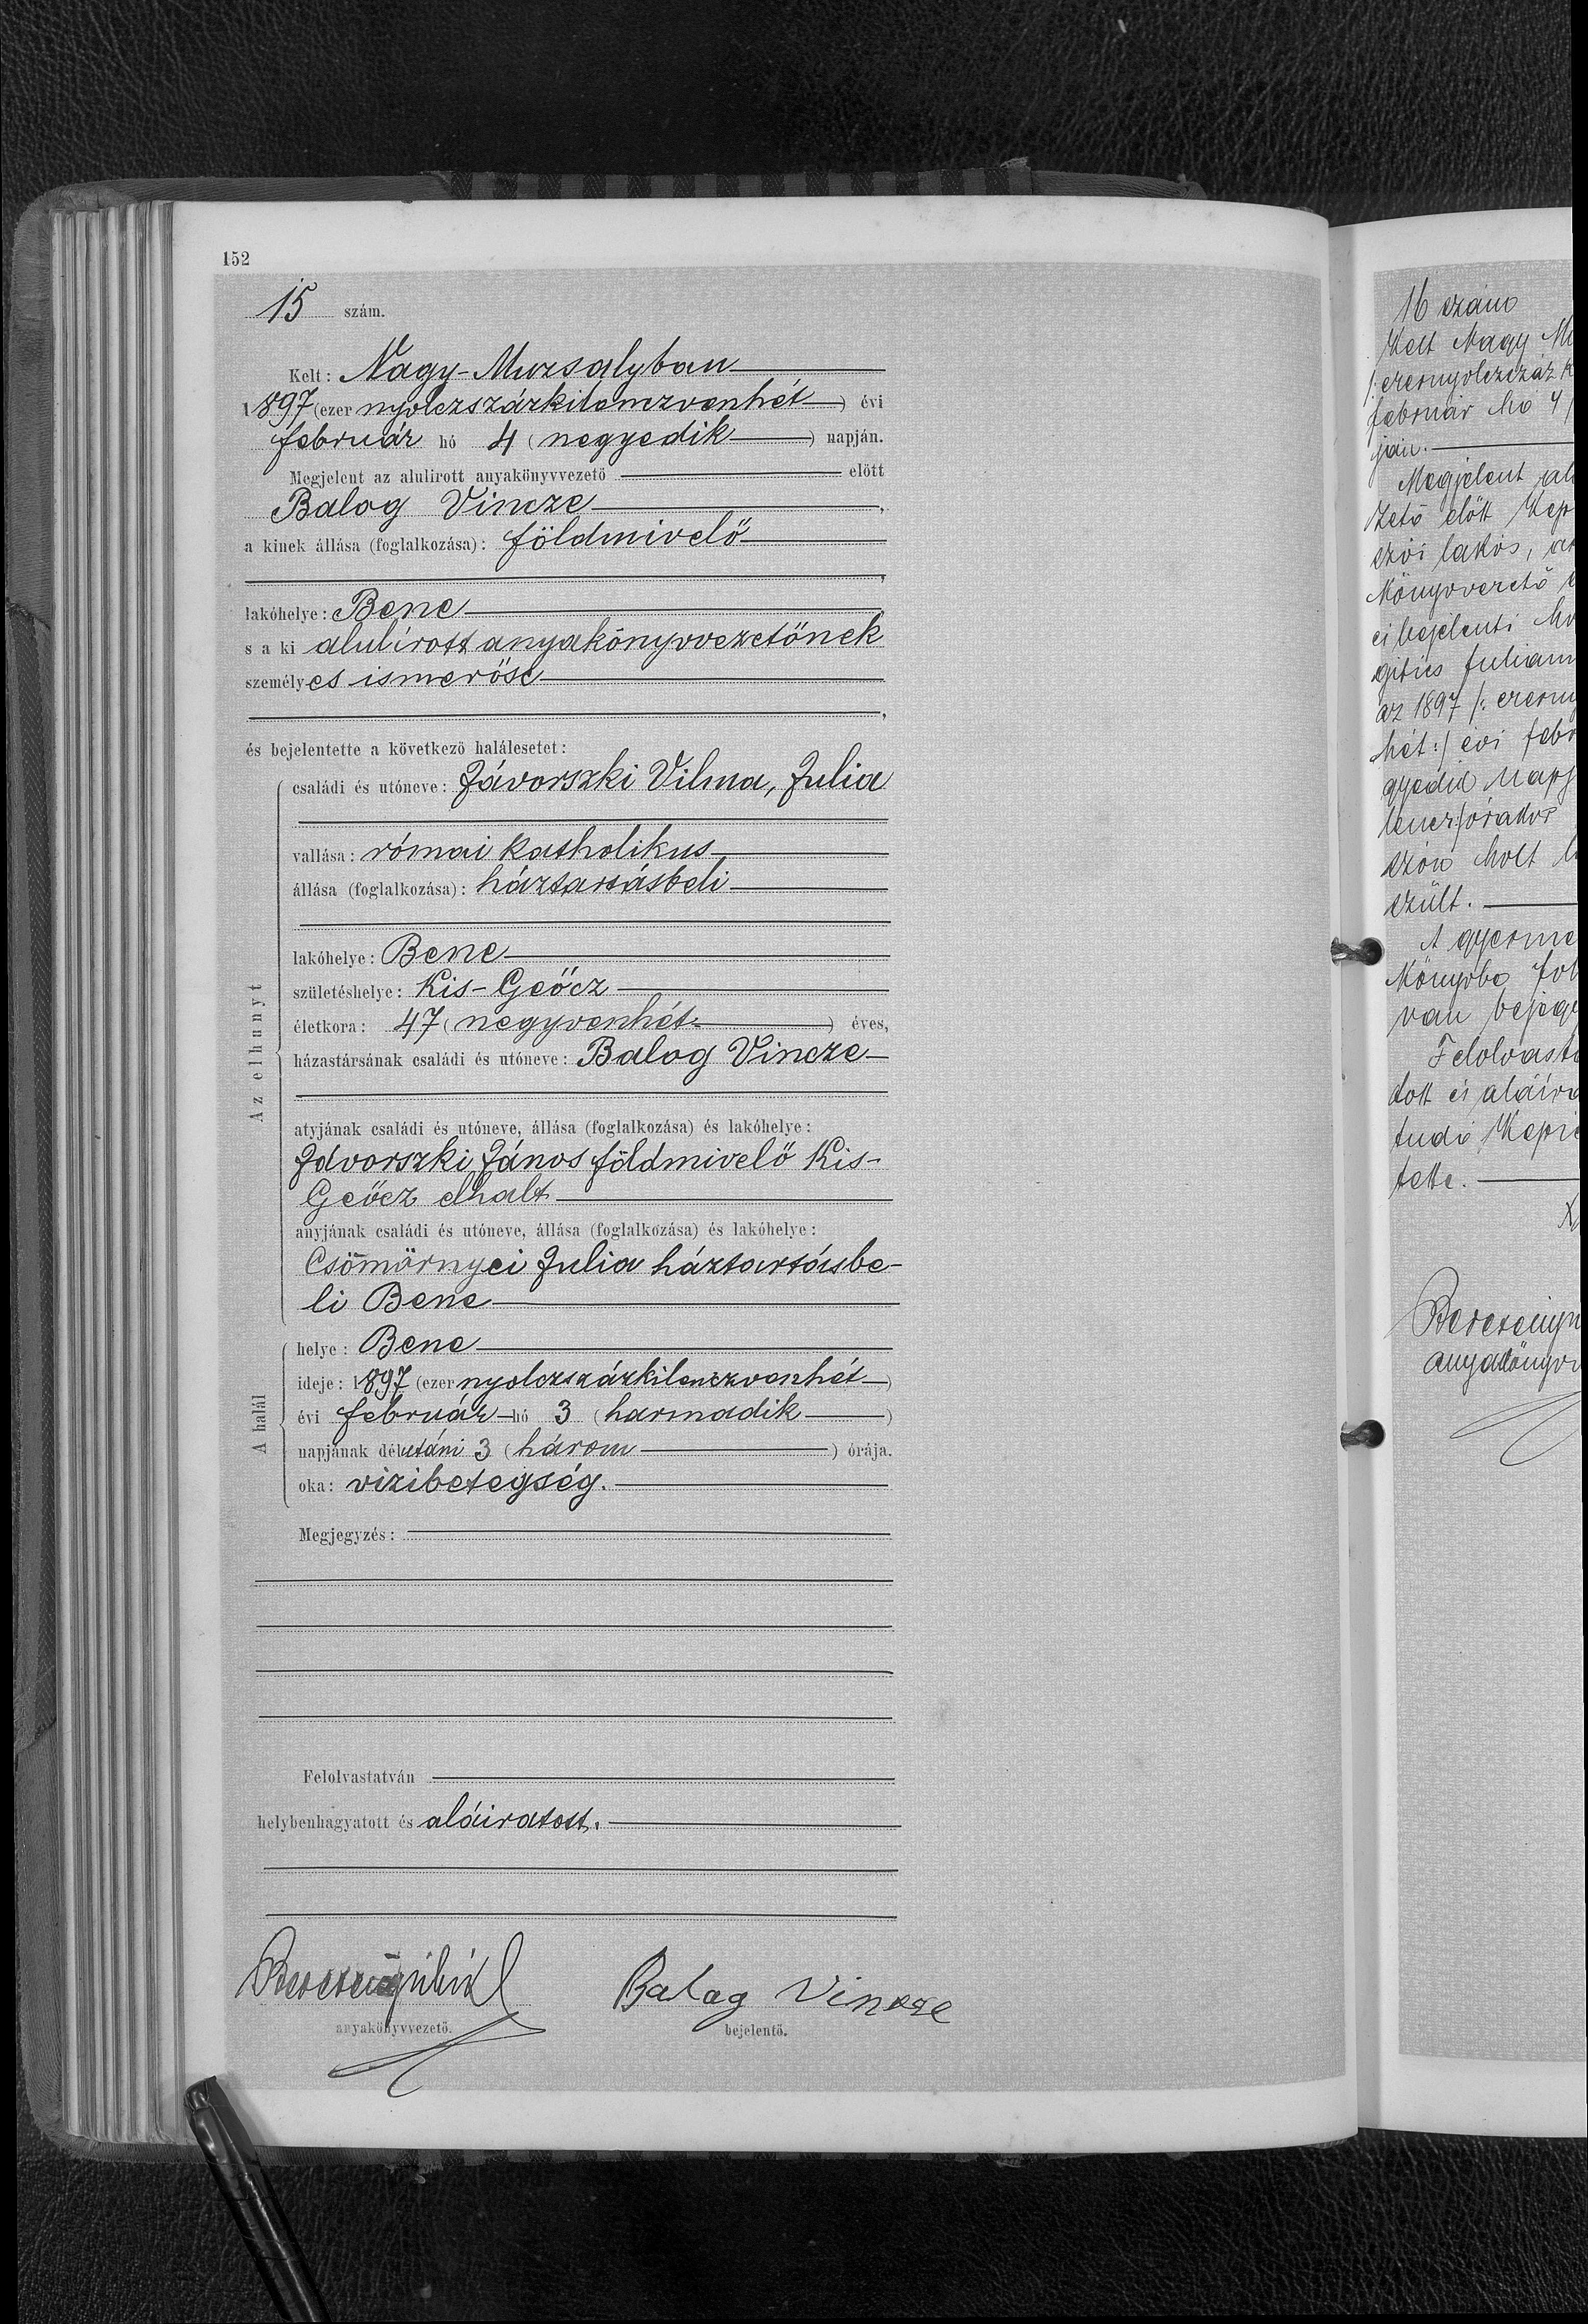 152
15 szám.
Kelt: Nagy-Muzsalyban
1897 (ezer nyolczszázkilenczvenhét) évi
február hó 4 (negyedik) napján.
Megjelent az alulirott anyakönyvvezető előtt
Balog Vincze,
a kinek állása (foglalkozása): földmivelő
,
lakóhelye: Bene
s a ki alulírott anyakönyvvezetőnek
személyes ismerőse
,
és bejelentette a következő halálesetet:
Az elhunyt
családi és utóneve: Jávorszki Vilma, Julia
vallása: római katholikus
állása (foglalkozása): háztartásbeli
lakóhelye: Bene
születéshelye: Kis-Geőcz
életkora: 47 (negyvenhét) éves,
házastársának családi és utóneve: Balog Vincze
atyjának családi és utóneve, állása (foglalkozása) és lakóhelye:
Jávorszki János földmivelő Kis-
Geőcz elhalt
anyjának családi és utóneve, állása (foglalkozása) és lakóhelye:
Csömörnyei Julia háztartásbe-
li Bene
A halál
helye: Bene
ideje: 1897 (ezer nyolczszázkilenczvenhét)
évi február hó 3 (harmadik)
napjának délutáni 3 (három) órája.
oka: vizibetegség.
Megjegyzés:
Felolvastatván
helybenhagyatott és aláiratott.
anyakönyvvezető.
Balag Vincze
bejelentő.
16 szám
Kelt Nagy
február hó 4
ján.
Megjelent
zető előtt
szói lakós,
könyvvezető
és bejelenti
az 1897
hét:) évi
gyedik
szón holt
szült.
A gyerme
könyvbe
van
Felolvast
tott és
tudó
tette.